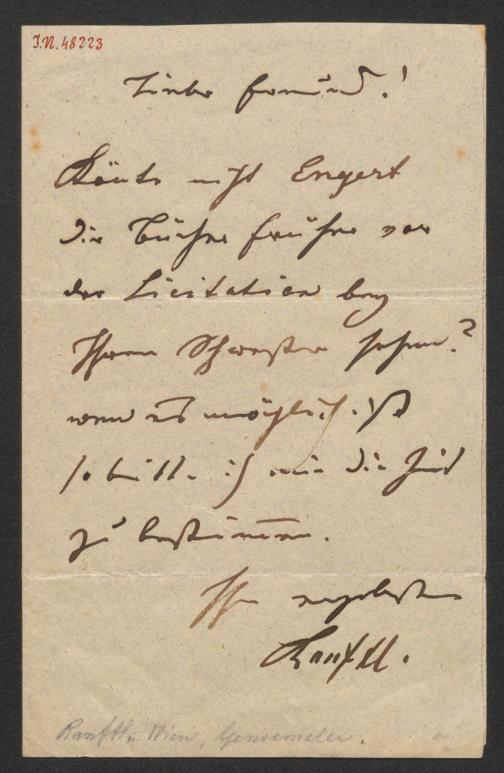 I.N. 48223
Lieber Freund!
Könte nicht Engert
die Bücher früher vor
der Licitation bey
Ihrer Schwester sehen?
wen es möglich ist
so bitte ich mir die Zeit
zu bestimmen.
Ihr ergebenster
Ranftl.
Ranftl, Wien, Genremaler.